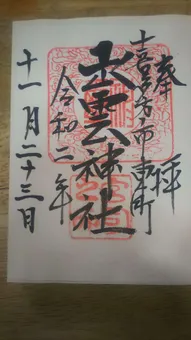 奉拝
喜多方市東町
出雲神社
令和二年
十一月二十三日